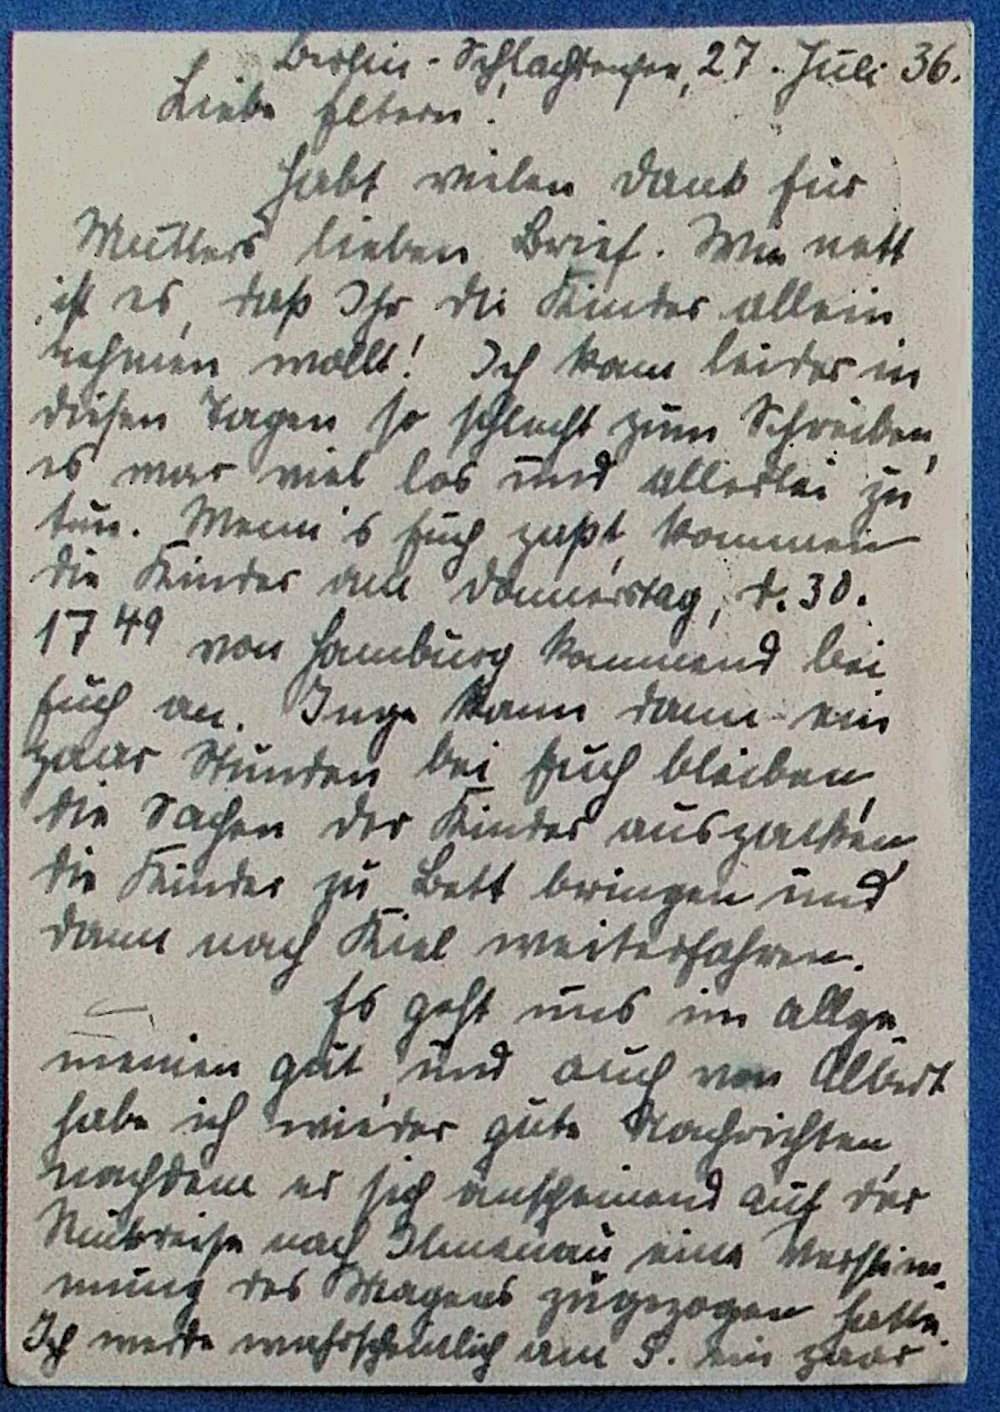 Berlin-Schlachtensee, 27. Juli 36.
Liebe Eltern!
Habt vielen Dank für
Mutters lieben Brief. Wie nett
ist es, daß Ihr die Kinder allein
nehmen wollt! Ich kam leider in
diesen Tagen so schlecht zum Schreiben,
es war viel los und allerlei zu
tun. Wenn's Euch paßt, kommen
die Kinder am Donnerstag, d. 30.
17 49 von Hamburg kommend bei
Euch an. Inge kann dann ein
paar Stunden bei Euch bleiben,
die Sachen der Kinder auspacken,
die Kinder zu Bett bringen und
dann nach Kiel weiterfahren.
Es geht uns im allge-
meinen gut und auch von Albert
habe ich wieder gute Nachrichten,
nachdem er sich anscheinend auf der
Rückreise nach Ilmenau eine Verstim-
mung des Magens zugezogen hatte.
Ich werde wahrscheinlich am 5. ein paar